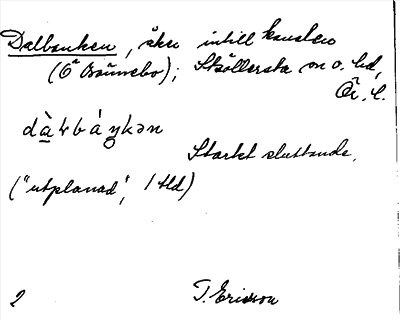 Dalbanken, åker intill kanslen
(Ö Brännebo); Sköllersta sn o. hd,
Ör. l.
dàɫbáŋkən
Starkt sluttande.
("utplanad", 1 tld)
2 T. Ericson